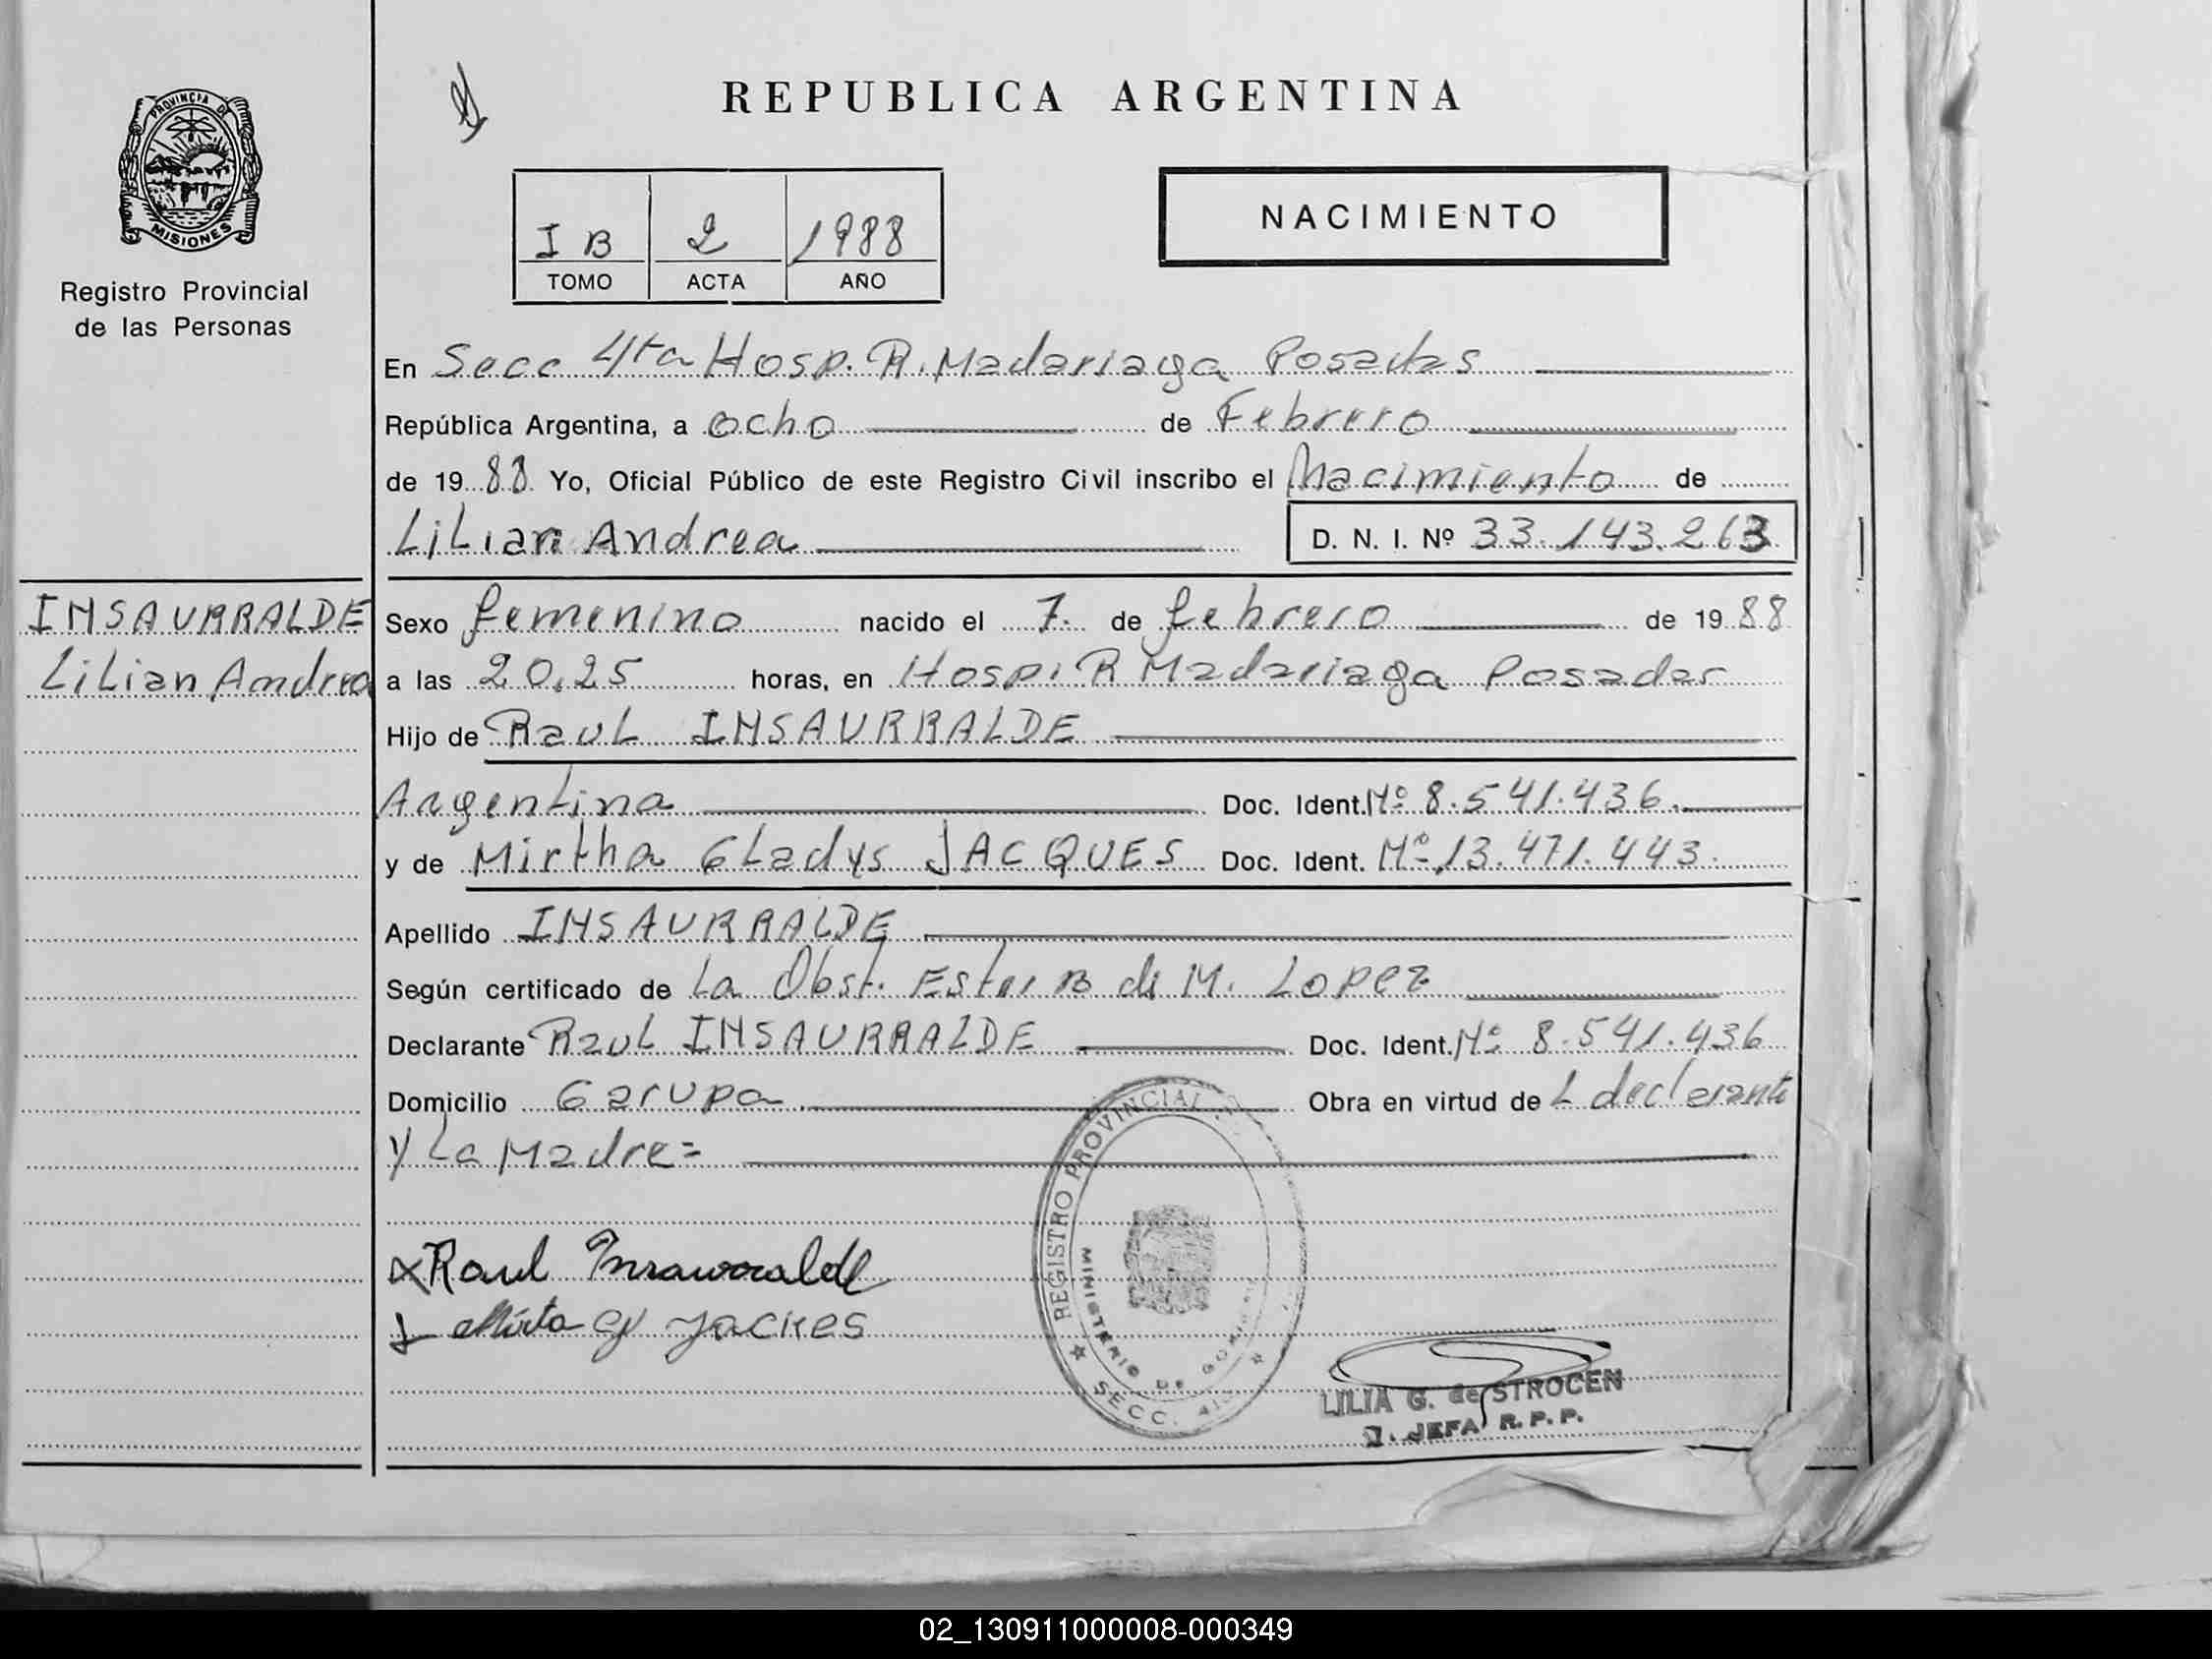 REPUBLICA ARGENTINA
PROVINCIA DE
MISIONES
Registro Provincial
de las Personas
I B 2 1988
TOMO ACTA AÑO
NACIMIENTO
En Secc 4ta Hosp. R. Madariaga Posadas
República Argentina, a ocho de Febrero
de 1988 Yo, Oficial Público de este Registro Civil inscribo el Nacimiento de
Lilian Andrea D. N. I. Nº 33.143.263
INSAURRALDE
Lilian Andrea
Sexo femenino nacido el 7 de febrero de 1988
a las 20,25 horas, en Hosp. R Madariaga Posadas
Hijo de Raul INSAURRALDE
Argentina Doc. Ident. Nº 8.541.436.
y de Mirtha Gladys JACQUES Doc. Ident. Nº 13.471.443.
Apellido INSAURRALDE
Según certificado de La Obst. Ester B de M. Lopez
Declarante Raul INSAURRALDE Doc. Ident. Nº 8.541.436
Domicilio Garupa Obra en virtud de L declarante
y La Madre=
Raul Insaurralde
Mirta G jackes
REGISTRO PROVINCIAL
MINISTERIO DE
SECC.
LILIA G. de STROCEN
JEFA R. P. P.
02_130911000008-000349